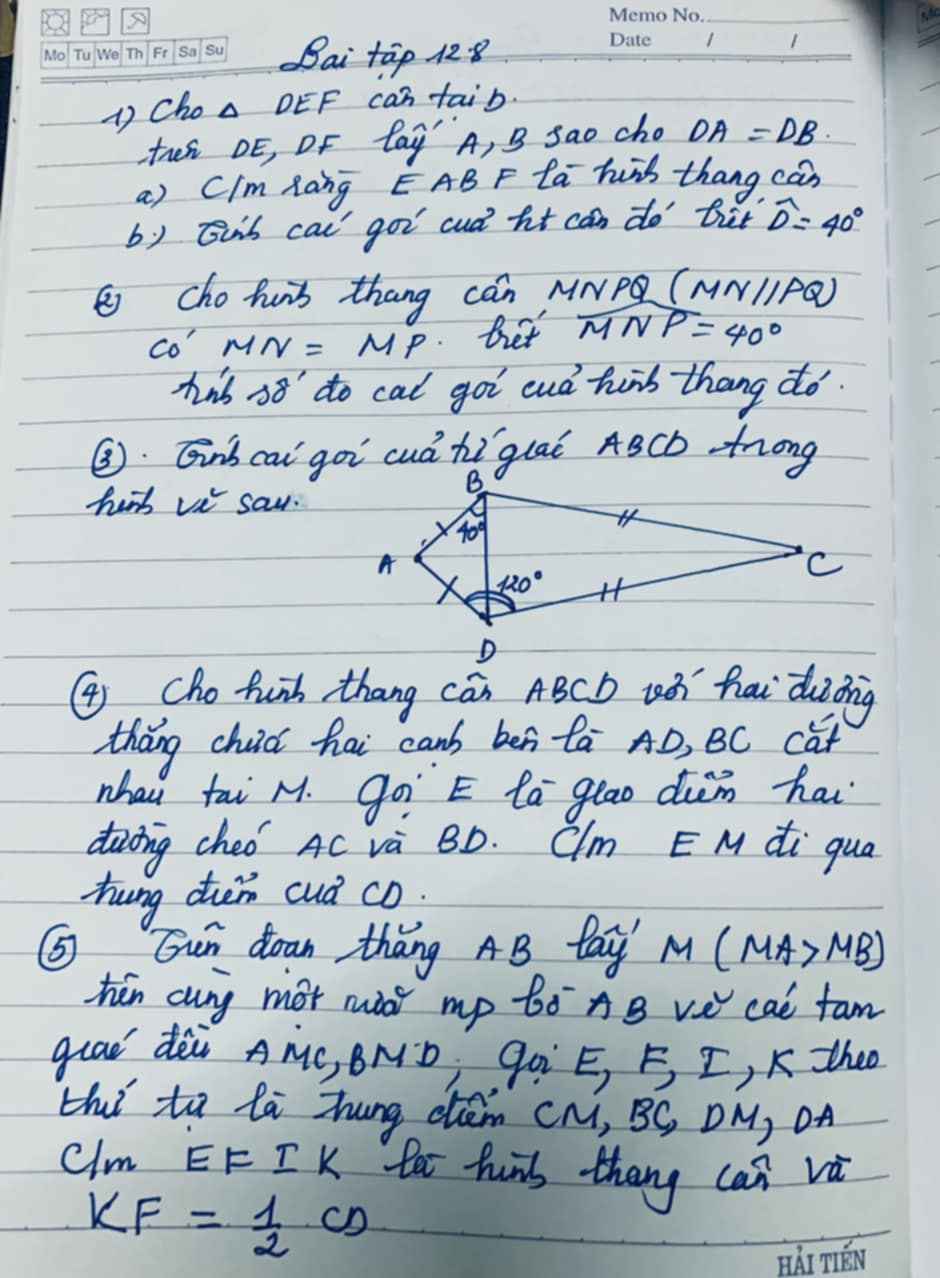 Memo No.
Mo Tu We Th Fr Sa Su
Date / /
Bài tập 12-8
1) Cho Δ DEF cân tại D.
trên DE, DF lấy A, B sao cho DA = DB.
a) C/m rằng EABF là hình thang cân
b.) Tính các góc của ht cân đó biết D̂ = 40°
② Cho hình thang cân MNPQ (MN//PQ)
có MN = MP. biết MNP = 40°
tính số đo các góc của hình thang đó.
③. Tính các góc của tứ giác ABCD trong
hình vẽ sau.
B
40°
A
C
120°
D
④ Cho hình thang cân ABCD với hai đường
thẳng chứa hai cạnh bên là AD, BC cắt
nhau tại M. Gọi E là giao điểm hai
đường chéo AC và BD. C/m EM đi qua
trung điểm của CD.
⑤ Trên đoạn thẳng AB lấy M (MA>MB)
trên cùng một nửa mp bờ AB vẽ các tam
giác đều AMC, BMD, Gọi E, F, I, K theo
thứ tự là trung điểm CM, BC, DM, DA
C/m EFIK là hình thang cân và
KF = 1/2 CD
HẢI TIẾN